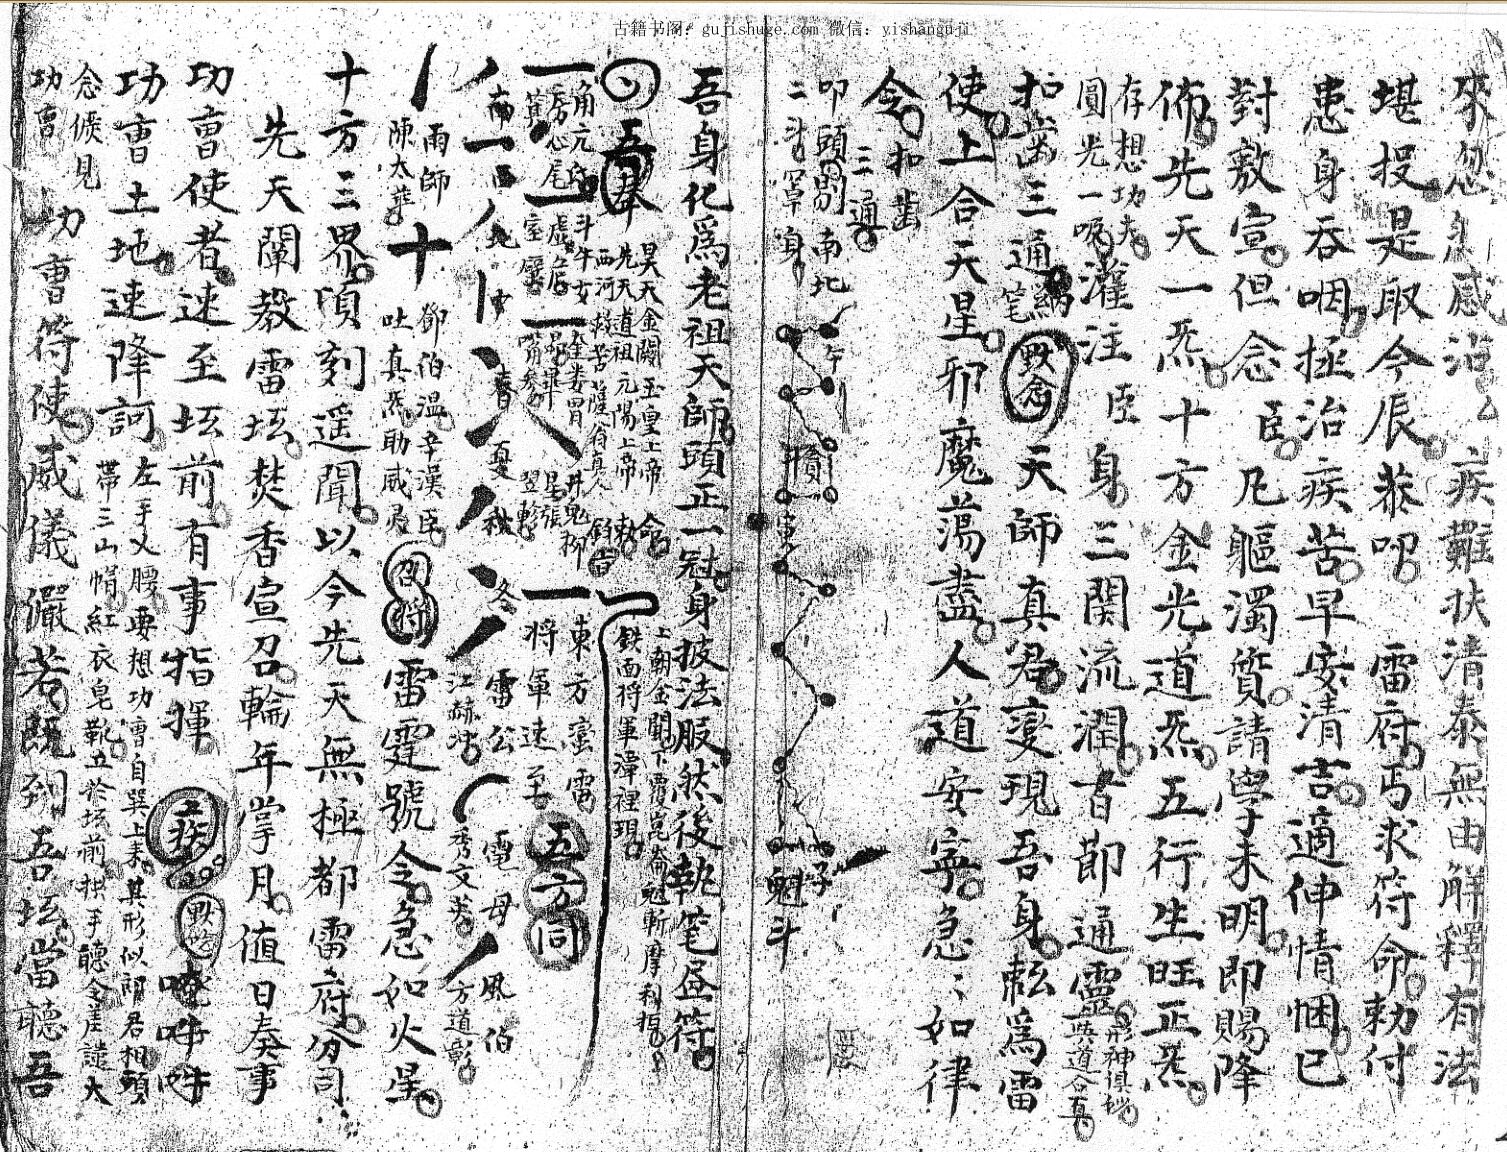 古籍书阁：gujishuge.com 微信：yishanguji
來忽 感治 疾難扶清泰無由解釋有法
堪投是取今辰恭叩 雷府丐求符命勅付
患身吞咽拯治疾苦早安清吉適伸情悃已
對敷宣但念臣凡軀濁質請學未明即賜降
佈先天一炁十方金光道炁五行生旺正炁
存想功夫
圓光一吸
灌注臣身三関流潤百節通靈
形神俱
與道合真
扣齒三通
笔
默念
天師真君变現吾身 為雷
使上合天星邪魔蕩盡人道安寧急〻如律
令
扣齒
三通
叩頭 南北
二斗罩身
魁斗
吾身化爲老祖天師頭正一冠身披法服然後執笔昼符
吾奉
昊天金闕玉皇上帝
先天道祖元陽上帝 敕命
西河救苦薩真人
上朝金闕下覆崑崙魁斬摩利
鉄面将軍潭裡現
角亢氐
房心尾
箕
斗牛女
虚危
室壁
奎娄胃
昴畢
觜参
井鬼柳
星張
翌軫
東方蛮雷
将軍速至
五方同
南
西
北
中
春
夏
秋
冬
雷公
江赫冲
電母
秀文英
風伯
方道彰
雨師
陳太華
十
鄧伯温辛漢臣
吐真炁助威灵
召将
雷霆號令急如火星
十方三界頃刻遥聞以今先天無極都雷府分司
先天闡教雷坛焚香宣召輪年掌月值日奏事
功曹使者速至坛前有事指揮
功曹土地速降訶
左手叉腰要想功曹自巽上来其形似郎君相頭
帶三山帽紅衣皂靴立於坛前拱手聽令差譴大
念候見
功曹
功曹符使威儀儼若既到吾坛當聽吾